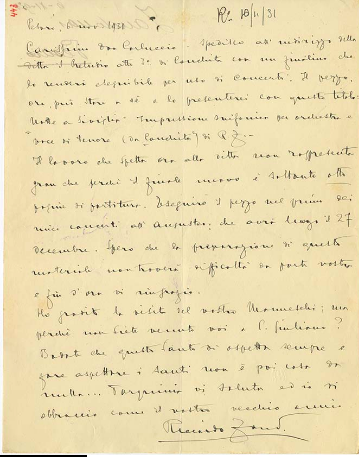 R. 10/11/31
Carissimo don Carluccio. Spedisco all'indirizzo della
ditta il Preludio atto 3º di Conchita con un finalino che
lo renderà eseguibile per uso di concerti. Il pezzo,
ora, può stare a sé e lo presenterei con questo titolo:
Notte a Siviglia. Impressione sinfonica per orchestra e
voce di tenore (da Conchita) di R. Z.
Il lavoro che spetta ora alla ditta non rappresenta
gran che perchè il finale nuovo è soltanto otto
pagine di partitura. Eseguirò il pezzo nel primo dei
miei concerti all'Augusteo, che avrà luogo il 27
decembre. Spero che la preparazione di questo
materiale non troverà difficoltà da parte vostra
e fin d'ora vi ringrazio.
Ho gradito la visita del vostro; ma
perchè non siete venuto voi a S. Giuliano?
Badate che questo Santo vi aspetta sempre e
fare aspettare i santi non è poi cosa da
nulla... Tarquinia vi saluta ed io vi
abbraccio come il vostro vecchio amico
Riccardo Zand.